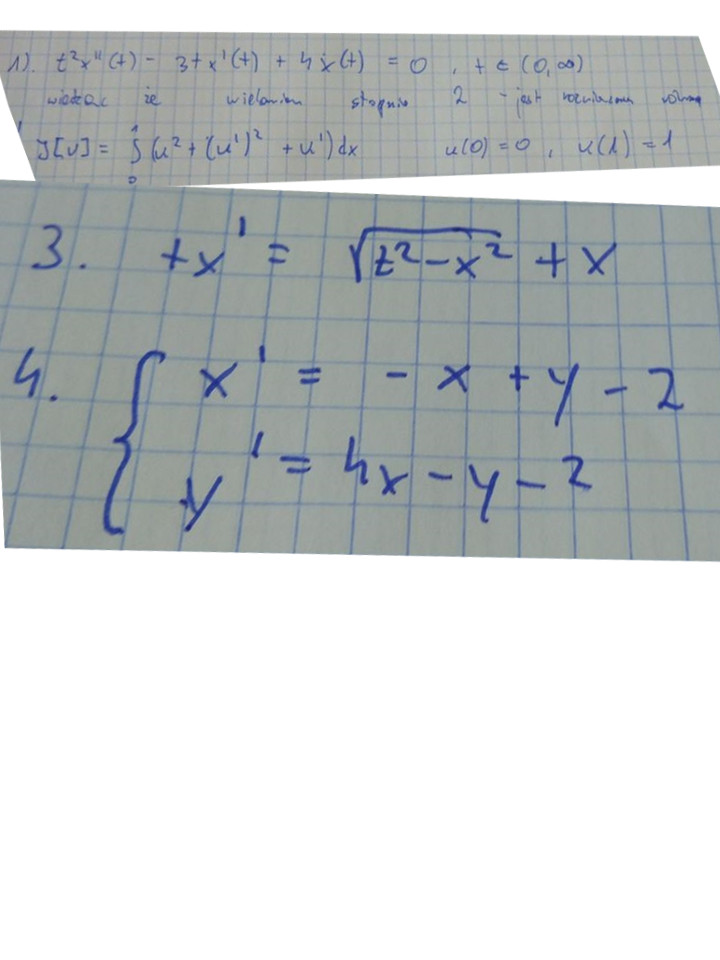 1). t²x''(t) - 3tx'(t) + 4x(t) = 0 , t ∈ (0,∞)
wiedząc że wielomian stopnia 2 - jest
J[u] = ∫₀¹ (u² + (u')² + u') dx u(0) = 0 , u(1) = 1
3. tx' = √(t² - x²) + x
4. { x' = - x + y - 2
y' = 4x - y - 2